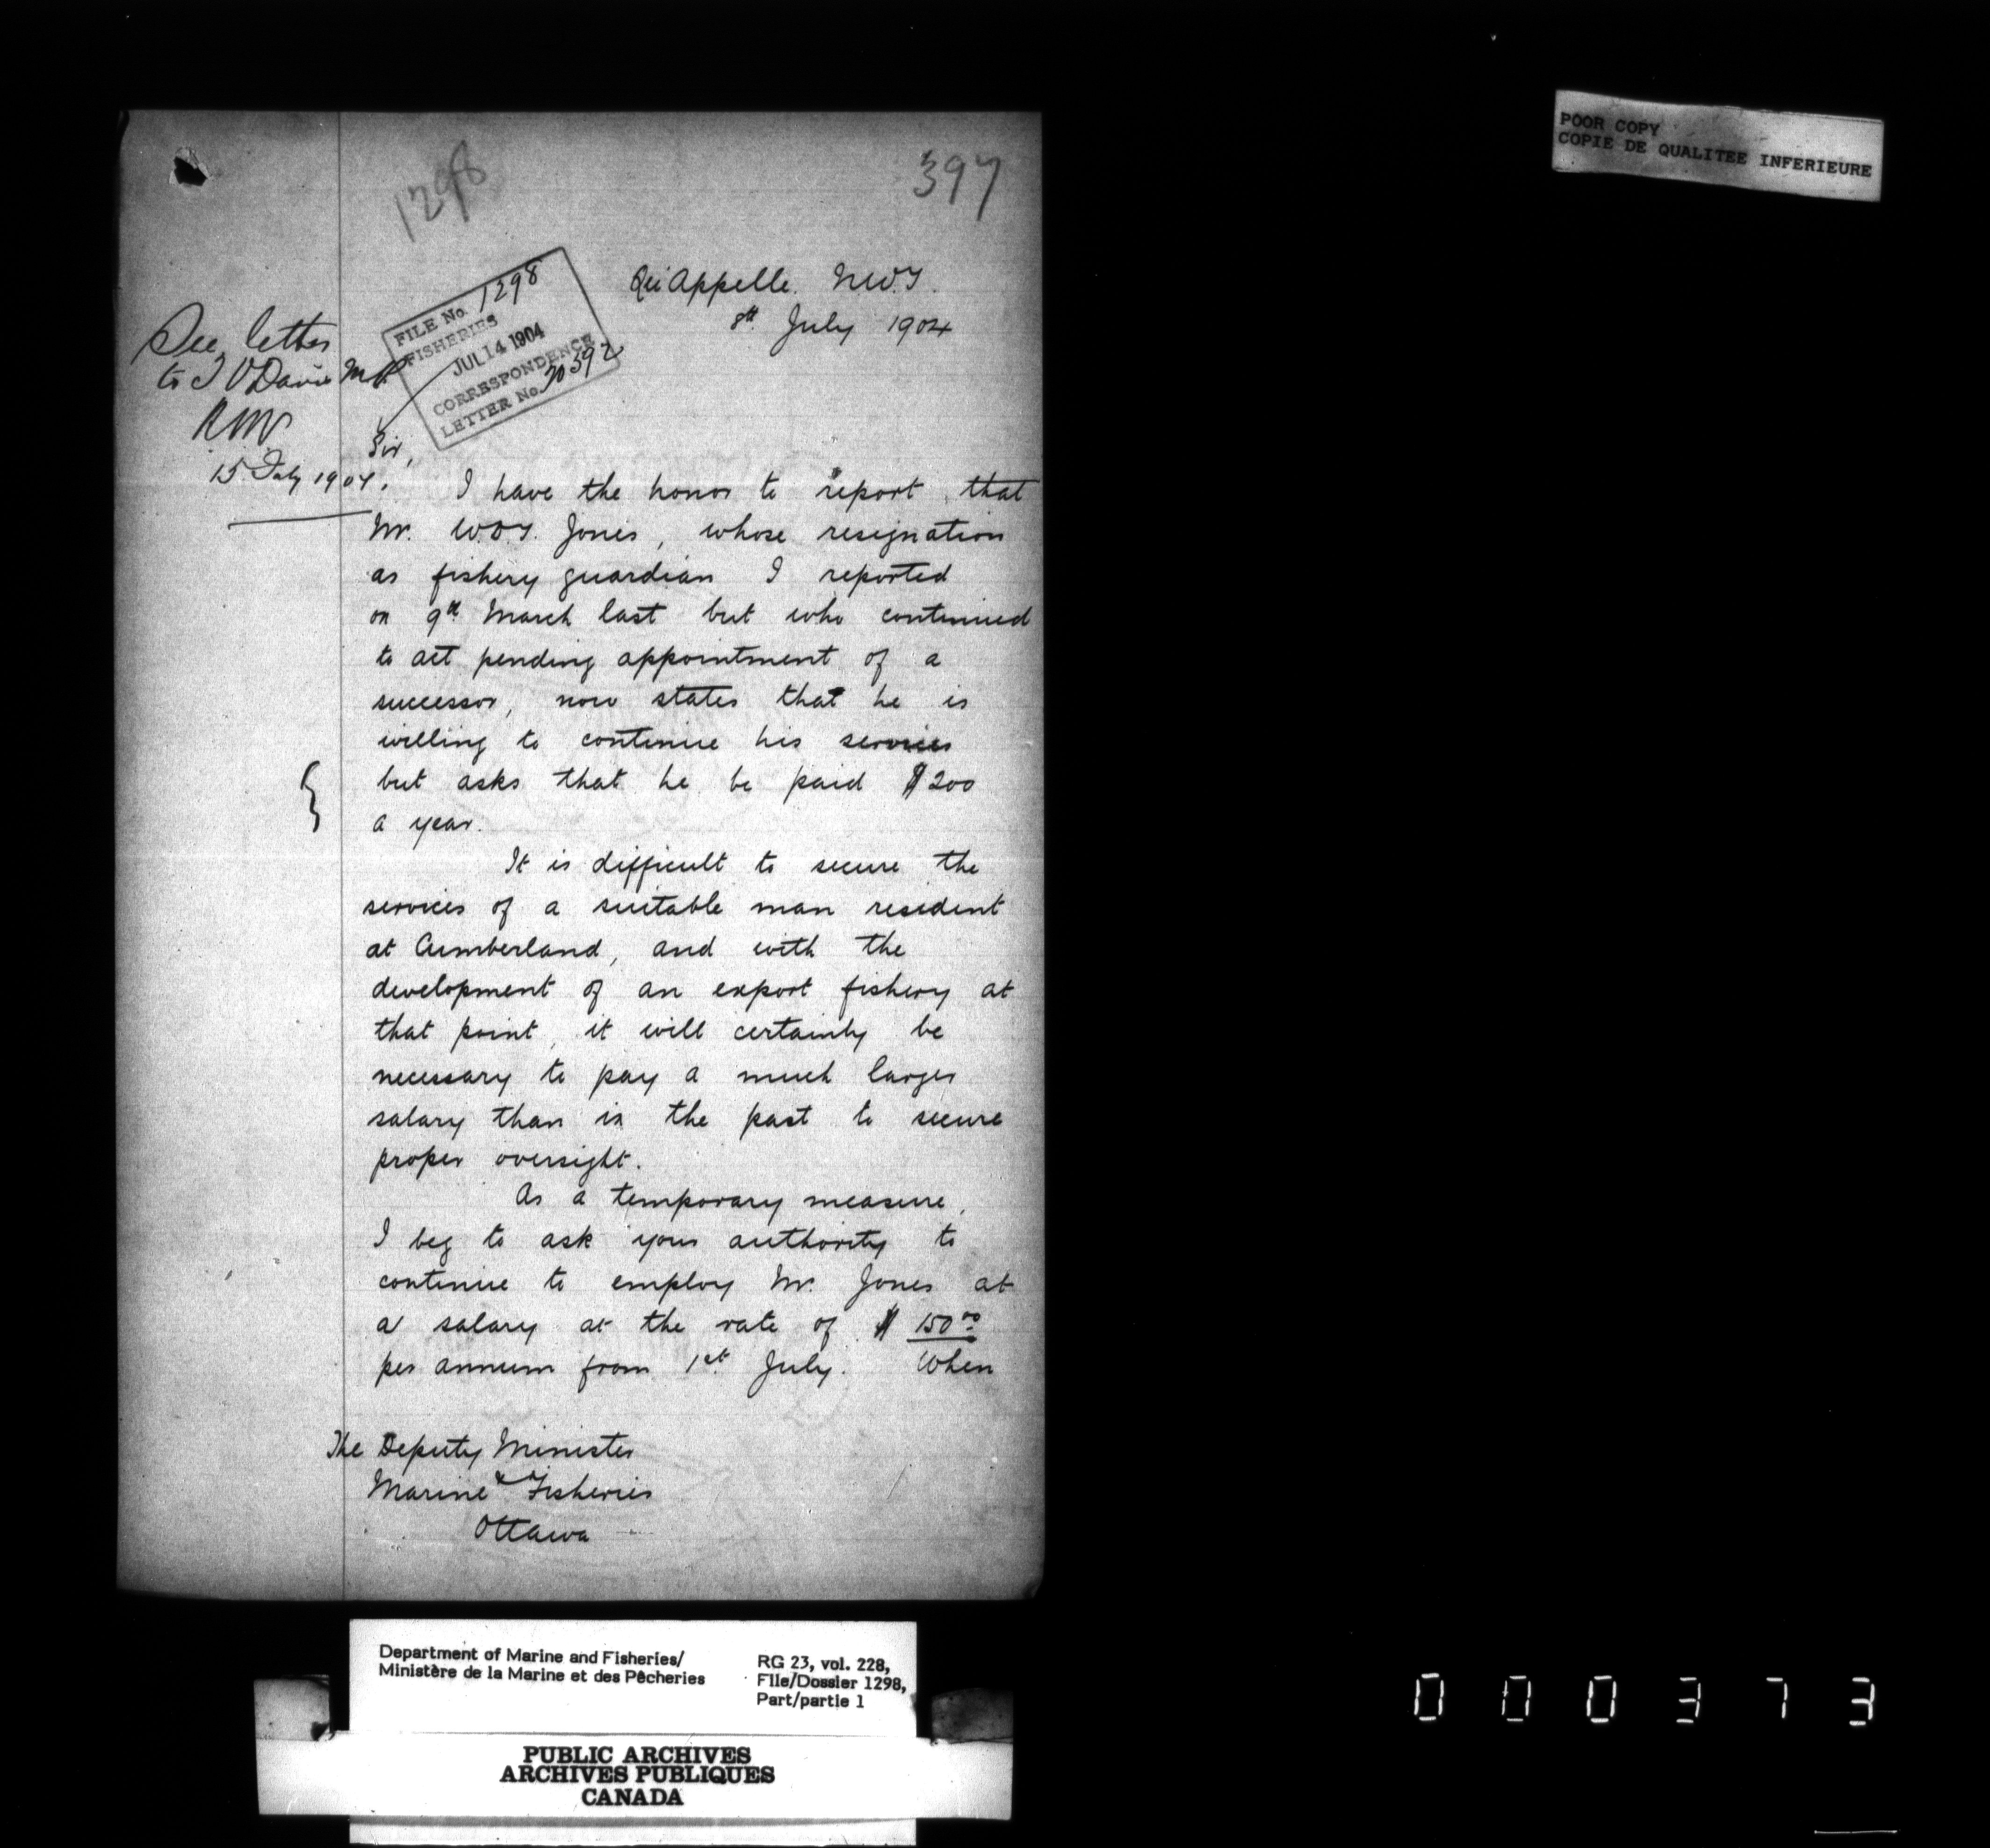 POOR COPY
COPIE DE QUALITEE INFERIEURE
1298
397
FILE No. 1298
FISHERIES
JUL 14 1904
CORRESPONDENCE
LETTER No. 70392
Qu'Appelle. N.W.T.
8th July 1904
See letter
to T O Davis MP
15 July 1904.
Sir,
I have the honor to report, that
Mr. W.D.T. Jones, whose resignation
as fishery guardian I reported
on 9th March last but who continued
to act pending appointment of a
successor, now states that he is
willing to continue his services
but asks that he be paid $200
a year.
It is difficult to secure the
services of a suitable man resident
at Cumberland, and with the
development of an export fishery at
that point, it will certainly be
necessary to pay a much larger
salary than in the past to secure
proper oversight.
As a temporary measure,
I beg to ask your authority to
continue to employ Mr. Jones at
a salary at the rate of $150.00
per annum from 1st July. When
The Deputy Minister
Marine & Fisheries
Ottawa
Department of Marine and Fisheries/
Ministère de la Marine et des Pêcheries
RG 23, vol. 228,
File/Dossier 1298,
Part/partie 1
PUBLIC ARCHIVES
ARCHIVES PUBLIQUES
CANADA
000373